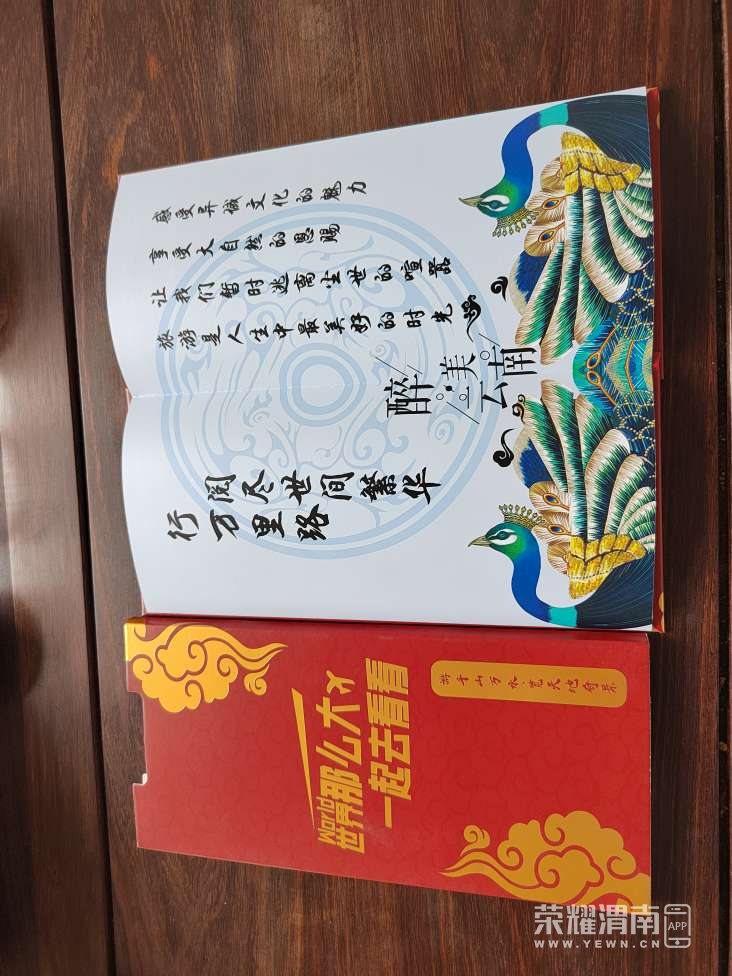 行万里路
阅尽世间繁华
醉美云南
旅游是人生中最美好的时光
让我们暂时逃离尘世的喧嚣
享受大自然的恩赐
感受异域文化的魅力
World
世界那么大
一起去看看
游千山万水·览天地奇景
荣耀渭南 APP
WWW.YEWN.CN